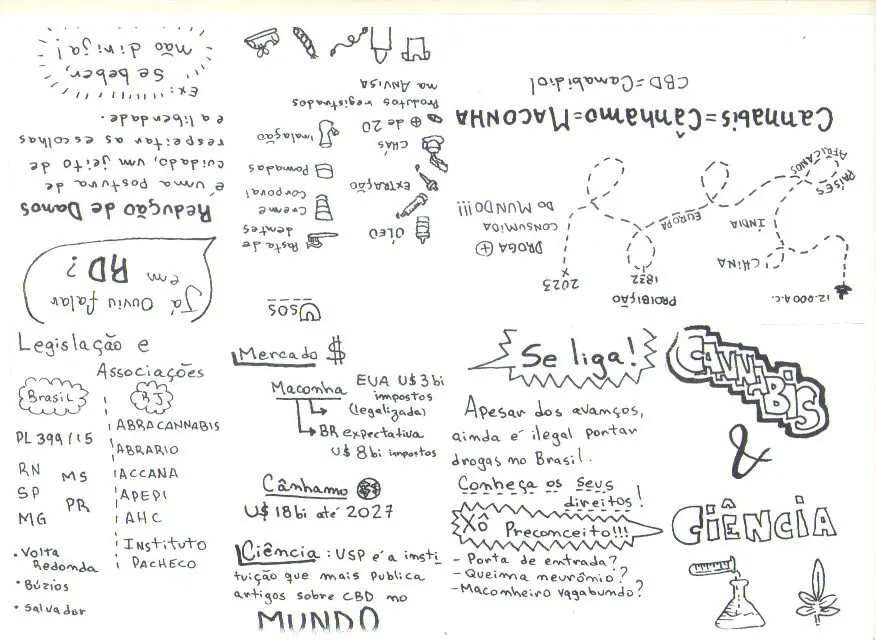 Já ouviu falar
em RD?
Redução de Danos
é uma postura de
cuidado, um jeito de
respeitar as escolhas
e a liberdade.
Ex:
Se beber,
não dirija!
USOS
ÓLEO
Pasta de
dentes
EXTRAÇÃO
Creme
Corporal
Pomadas
CHÁS
inalação
⊕ de 20
Produtos registrados
na ANVISA
12.000 A.C.
CHINA
ÍNDIA
PAÍSES
AFRICANOS
EUROPA
PROIBIÇÃO
1832
2023
DROGA ⊕
CONSUMIDA
DO MUNDO!!!
Cannabis=Cânhamo=MACONHA
CBD=Canabidiol
Legislação e
Associações
Brasil
RJ
PL 399/15
RN MS
SP
PR
MG
• Volta
Redonda
• Búzios
• Salvador
ABRACANNABIS
ABRARIO
ACCANA
APEPI
AHC
Instituto
PACHECO
Mercado $
Maconha
EUA U$ 3 bi
impostos
(legalizada)
BR expectativa
U$ 8 bi impostos
Cânhamo
U$ 18 bi até 2027
Ciência: USP é a insti
tuição que mais publica
artigos sobre CBD no
MUNDO
Se liga!
Apesar dos avanços,
ainda é ilegal portar
drogas no Brasil.
Conheça os seus
direitos!
Xô Preconceito!!!
- Porta de entrada?
- Queima neurônio?
- Maconheiro vagabundo?
CANNABIS
&
CIÊNCIA